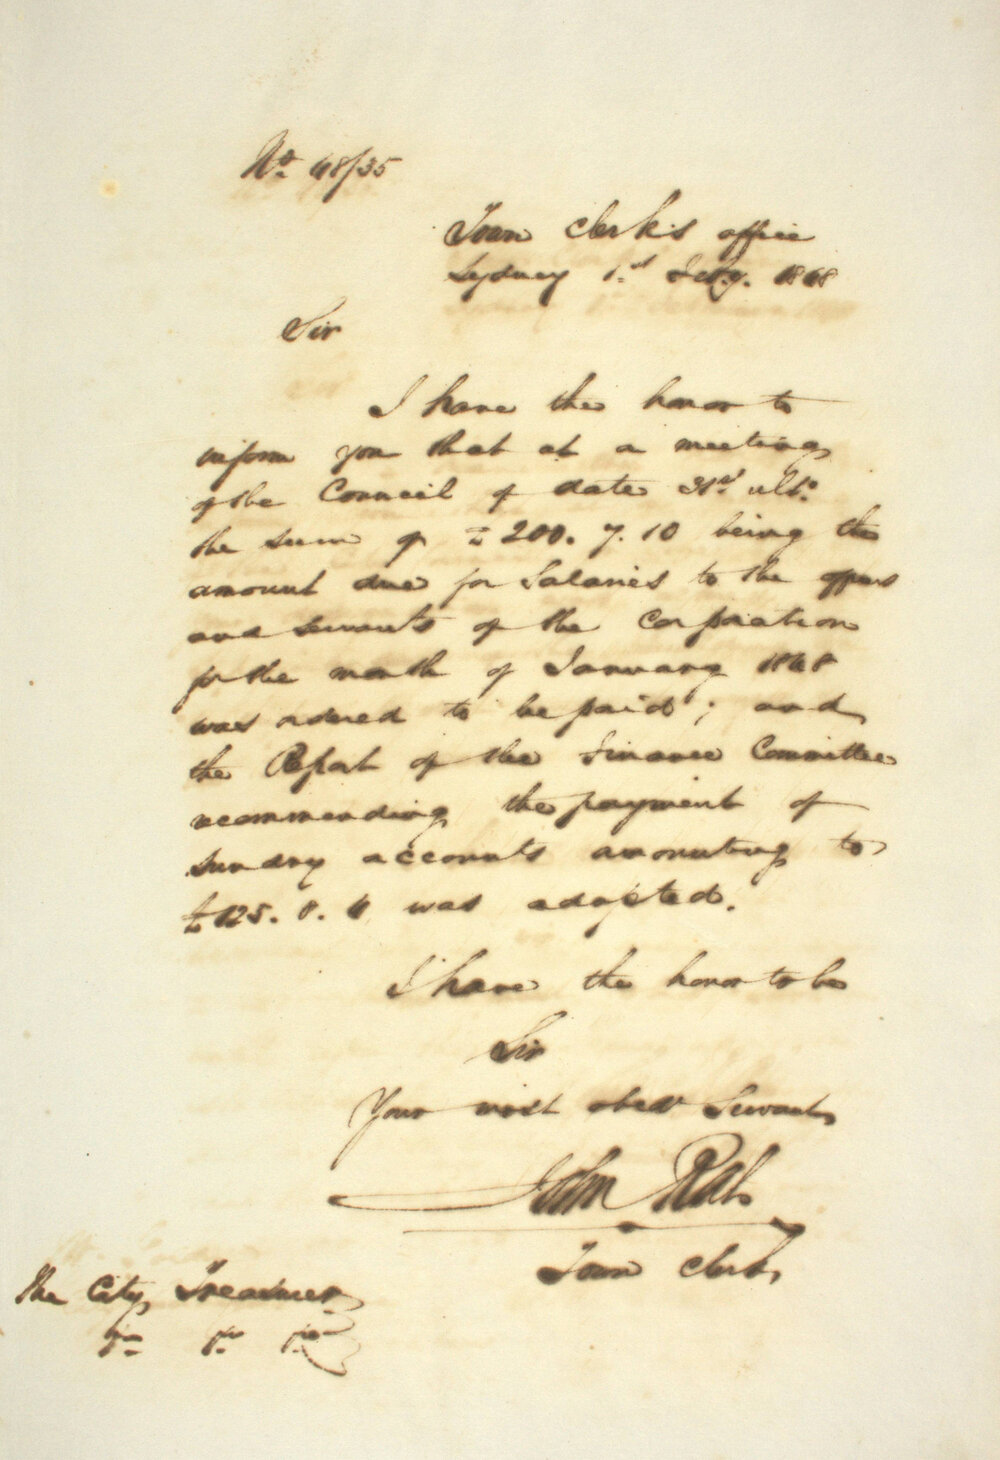 No. 48/35
Town Clerk's office
Sydney 1st Feby. 1848
Sir
I have the honor to
inform you that at a meeting
of the Council of date 31st ulto.
the sum of £200. 7. 10 being the
amount due for Salaries to the officers
and servants of the Corporation
for the month of January 1848
was ordered to be paid; and
the Report of the Finance Committee
recommending the payment of
sundry accounts amounting to
£125. 8. 4 was adopted.
I have the honor to be
Sir
Your most obedt Servant
John Rae
Town Clerk
The City Treasurer